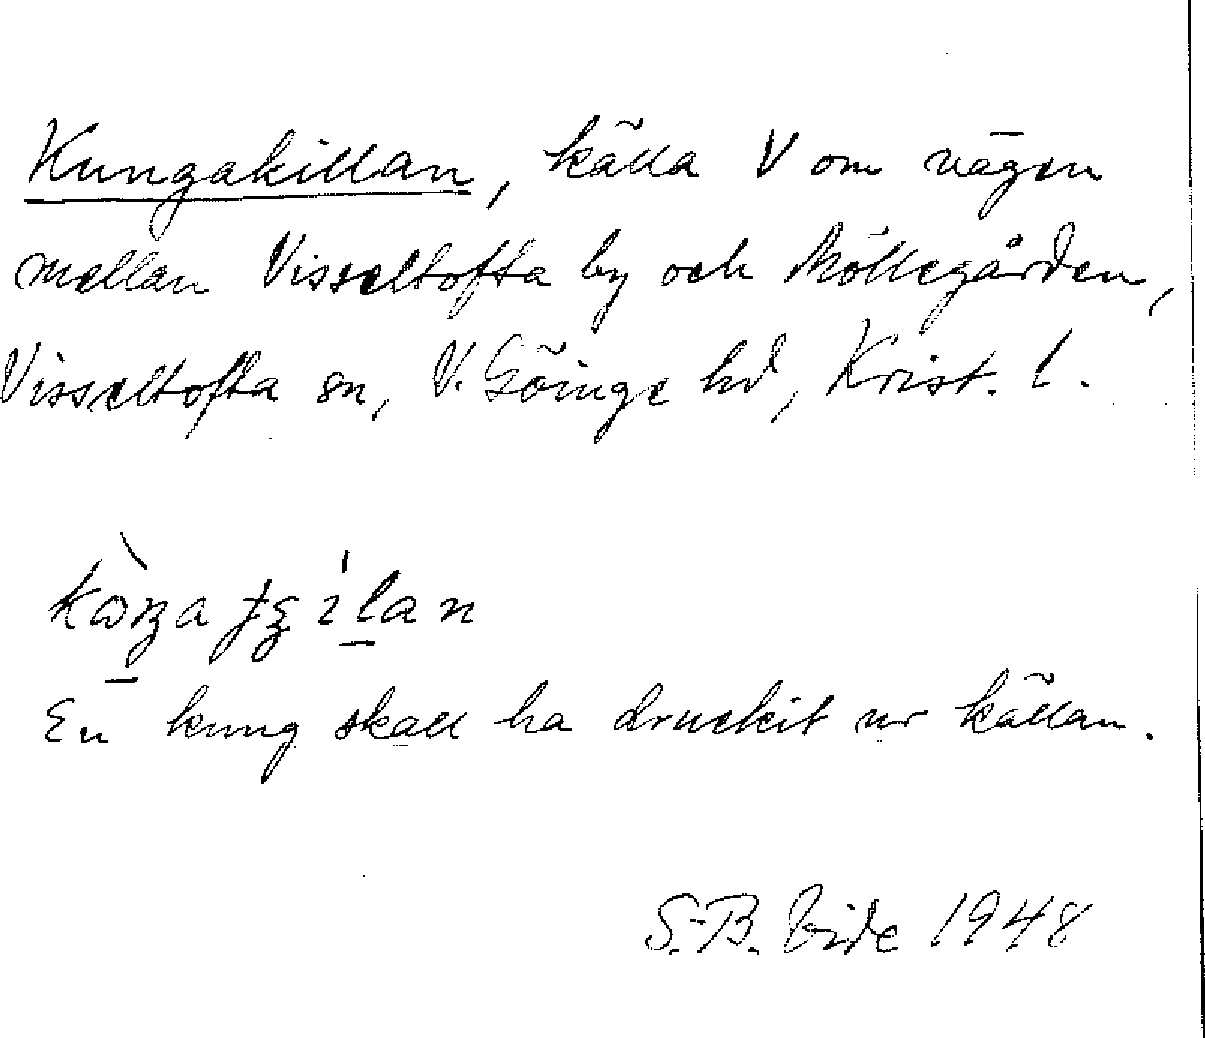 Kungakillan, källa V om vägen
mellan Visseltofta by och Möllegården,
Visseltofta sn, V. Göinge hd, Krist. l.
En kung skall ha druckit ur källan.
S.-B. Vide 1948